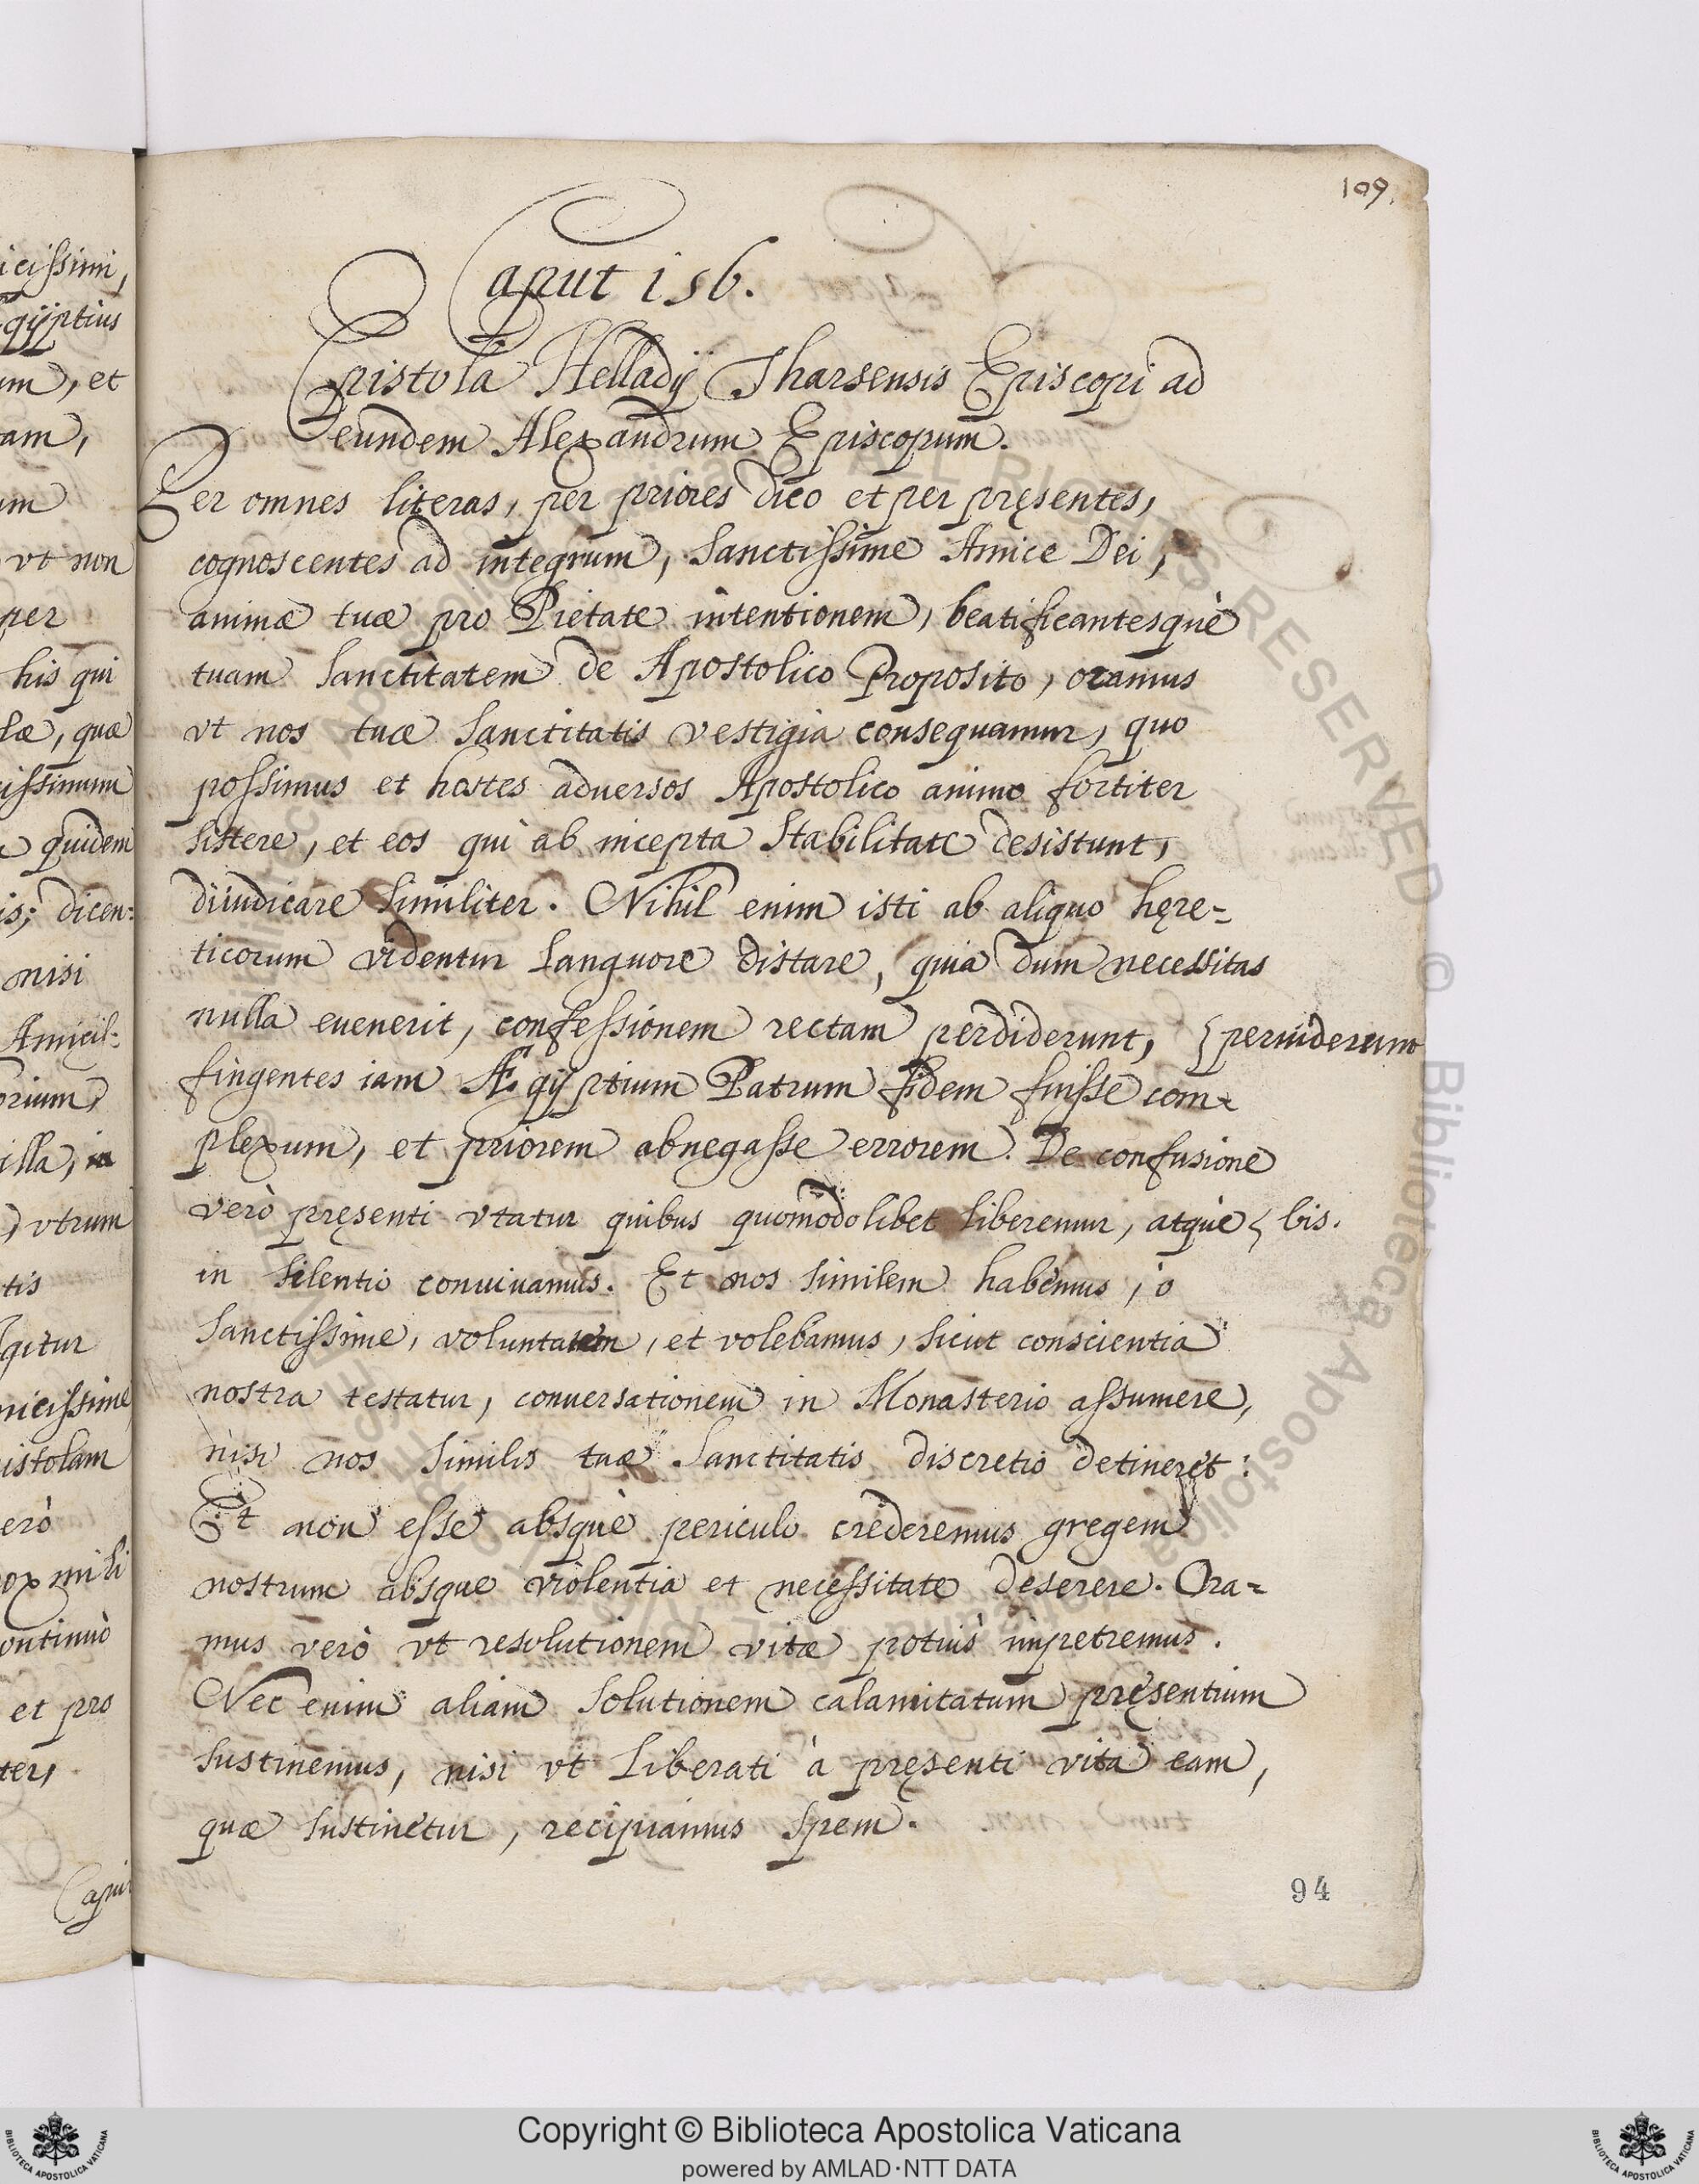 109.
Caput 156.
Epistola Helladij Tharsensis Episcopi ad
eundem Alexandrum Episcopum.
Per omnes literas, per priores dico et per pręsentes,
cognoscentes ad integrum, Sanctissime Amice Dei,
animæ tuæ pro Pietate intentionem, beatificantesquè
tuam Sanctitatem de Apostolico Proposito, oramus
vt nos tuæ Sanctitatis vestigia consequamur, quo
possimus et hostes aduersos Apostolico animo fortiter
sistere, et eos qui ab incepta Stabilitate desistunt,
diiudicare similiter. Nihil enim isti ab aliquo hęre=
ticorum videntur Languore distare, quia dum necessitas
nulla euenerit, confessionem rectam perdiderunt, { peruiderunt
fingentes iam Ægÿptium Patrum fidem fuisse com=
plexum, et priorem abnegasse errorem. De confusione
verò pręsenti vtatur quibus quomodolibet liberemur, atquè { bis.
in silentio conuiuamus. Et nos similem habemus, ò
Sanctissime, voluntatem, et volebamus, sicut conscientia
nostra testatur, conuersationem in Monasterio assumere,
nisi nos similis tuæ Sanctitatis discretio detineret:
Et non esse absquè periculo crederemus gregem
nostrum absque violentia et necessitate deserere. Ora=
mus verò vt resolutionem vitæ potiùs impetremus.
Nec enim aliam solutionem calamitatum pręsentium
sustinemus, nisi vt Liberati à pręsenti vita eam,
quæ sustinetur, recipiamus spem.
94
icissimi,
gÿptius
um, et
am,
um
vt non
per
his qui
læ, quæ
issimum
quidem
is; dicen=
nisi
Amicis=
orium,
illa, in
vtrum
tis
gitur
micissime,
istolam
erò
ox mihi
ontinuò
et pro
ter,
Caput
© Biblioteca Apostolica
RIGHTS RESERVED
Copyright © Biblioteca Apostolica Vaticana
powered by AMLAD·NTT DATA
BIBLIOTECA APOSTOLICA VATICANA
BIBLIOTECA APOSTOLICA VATICANA